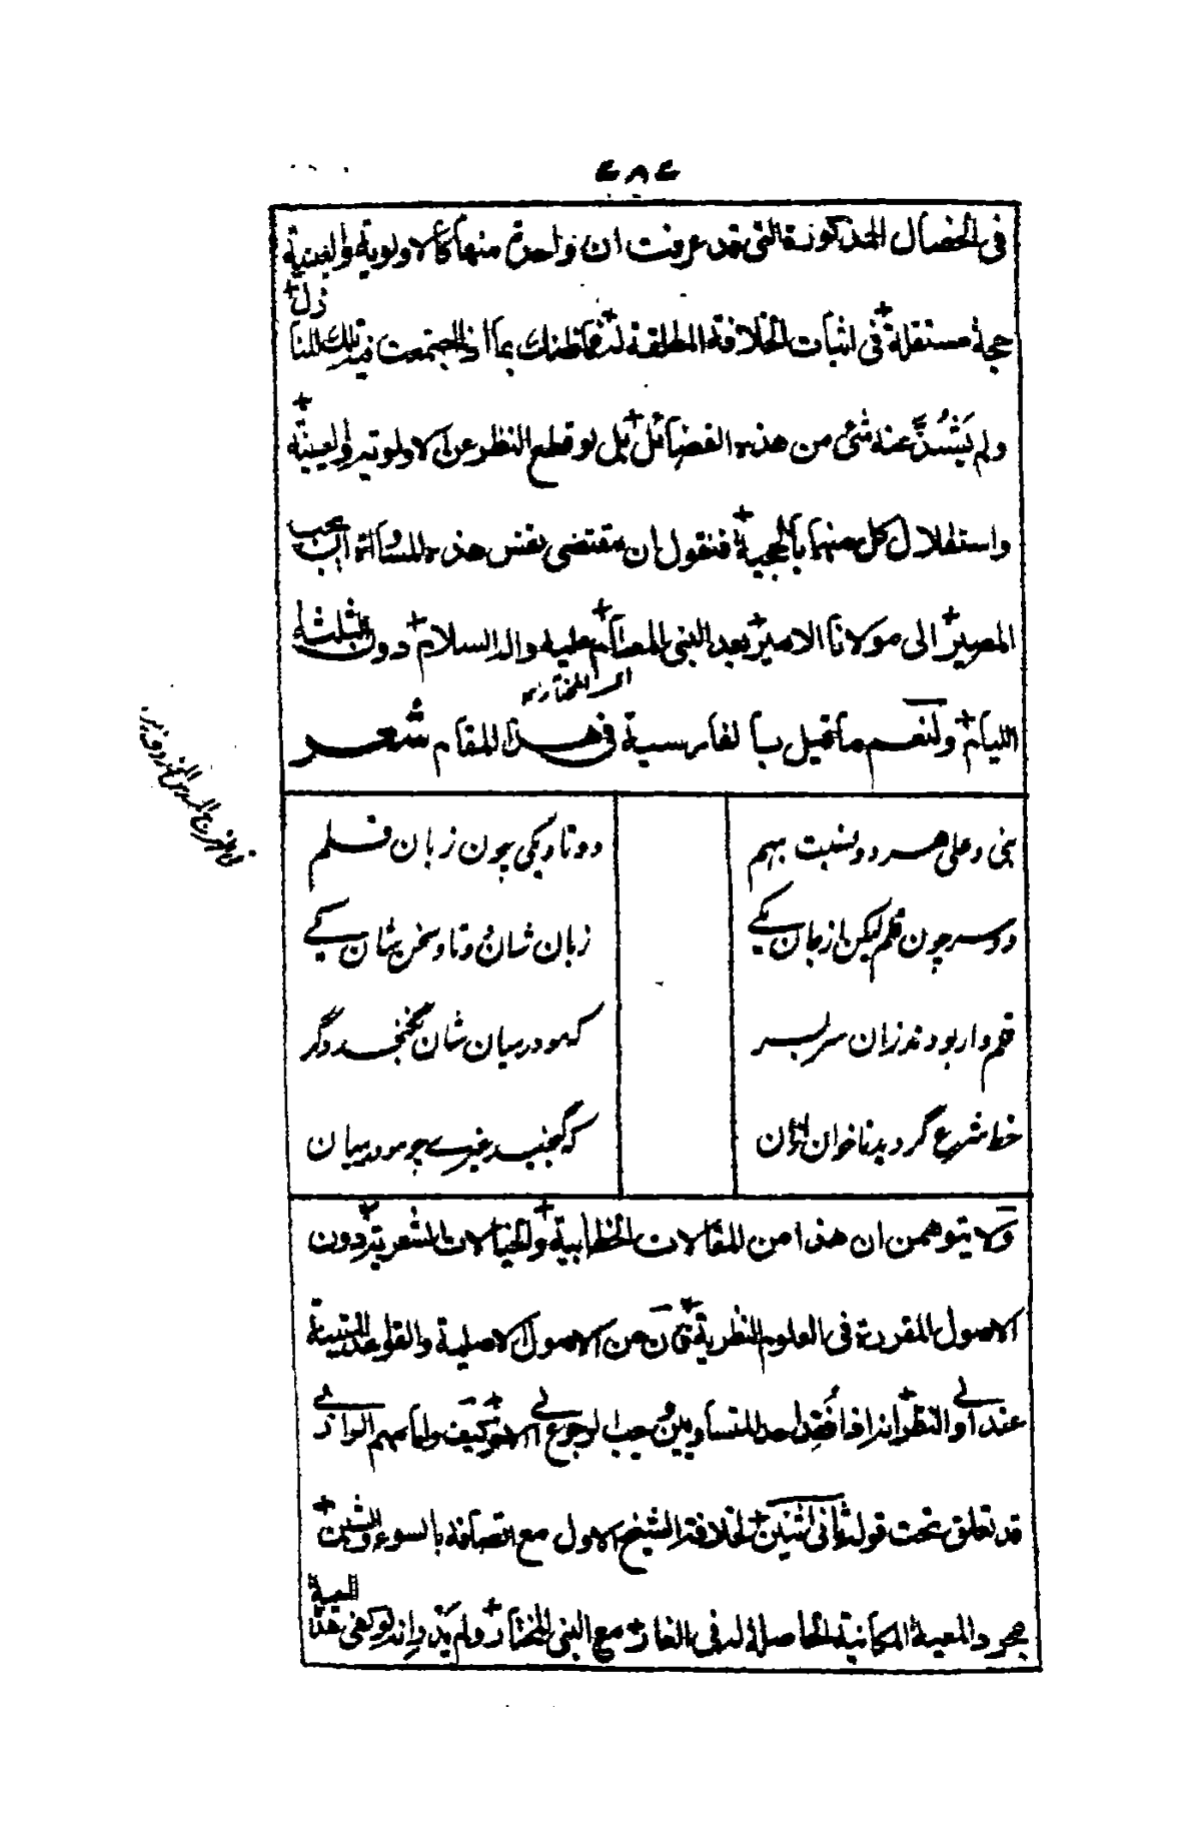 ٤٨٤
فى الخصال المذكورة التى قد عرفت ان واحدة منها كالاولوية والعينية
حجة مستقلة فى اثبات الخلافة المطلقة له فما ظنك بما اذا اجتمعت فيه تلك المنازل
ولم يَشُذّ عنه شئ من هذه الفضائل بل لو قطع النظر عن الاولوية والعينية
واستقلال كل منهما بالحجية فنقول ان مقتضى نفس هذه المساواة ايضا يجب
المصير الى مولانا الامير بعد النبى عليه واله السلام دون الثلثة
الليام ولنعم ما قيل بالفارسية فى هذا المقام شعر
نبى و على هر دو نسبت بهم
دو تا و يكى چون زبان قلم
دو سر چون قلم ليكن از جان يكے
زبان شان دو تا و سخن شان يكے
قلم وار بودند زان سر بسر
كه مو در ميان شان نگنجد دگر
خط شرع گرديد ناخوان ازان
كه گنجيد غيرے چو مو در ميان
ولا يتوهمن ان هذا من المقالات الخطابية والخيالات الشعرية دون
الاصول المقررة فى العلوم النظرية فان من الاصول الاصلية والقواعد
عند اولى النظر انه اذا فُقِد احد المتساويين يجب الرجوع الى الاخر كيف وامامهم الرازى
قد تعلق تحت قوله ثانى اثنين لخلافة الشيخ الاول مع اتصافه بالسوء والشين
بمجرد المعية المكانية الحاصلة له فى الغار مع النبى المختار ولم يدر انه لو كفى هذا المعية